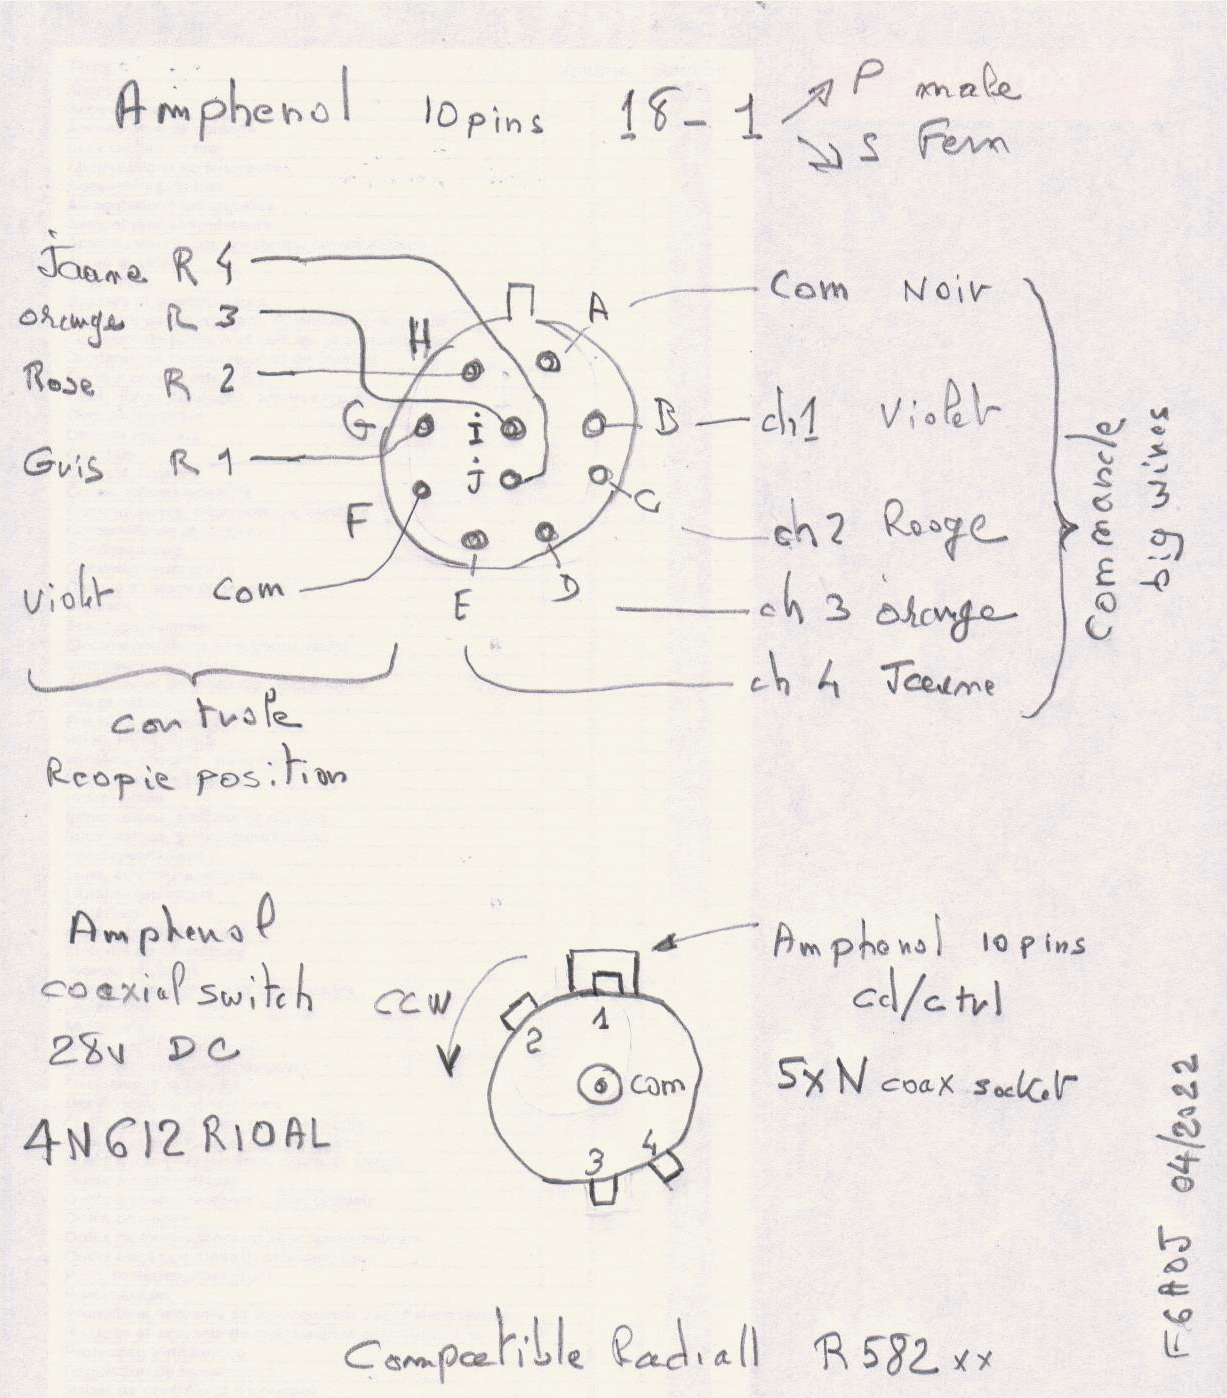 Amphenol 10pins 18-1 P male
S Fem
Jaune R 4
orange R 3
Rose R 2
Gris R 1
violet com
H
A
G
I
B
J
C
F
E
D
Com Noir
ch1 Violet
ch2 Rouge
ch 3 orange
ch 4 Jaune
commande
big wires
controle
Rcopie position
Amphenol
coaxial switch
28v DC
4N612R10AL
CCW
2
1
com
3
4
Amphenol 10pins
cd/ctrl
5xN coax socket
F6AOJ 04/2022
Compatible Radiall R582xx